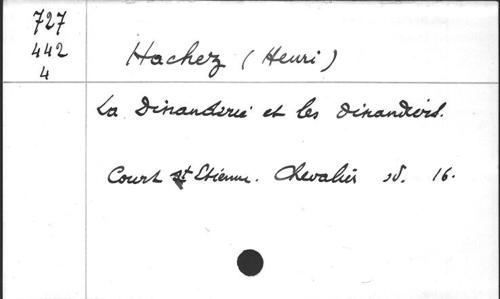 727
442
4
Hachez (Henri)
La Dinanderie et les dinandiers.
Court St Etienne. Chevalier sd. 16.